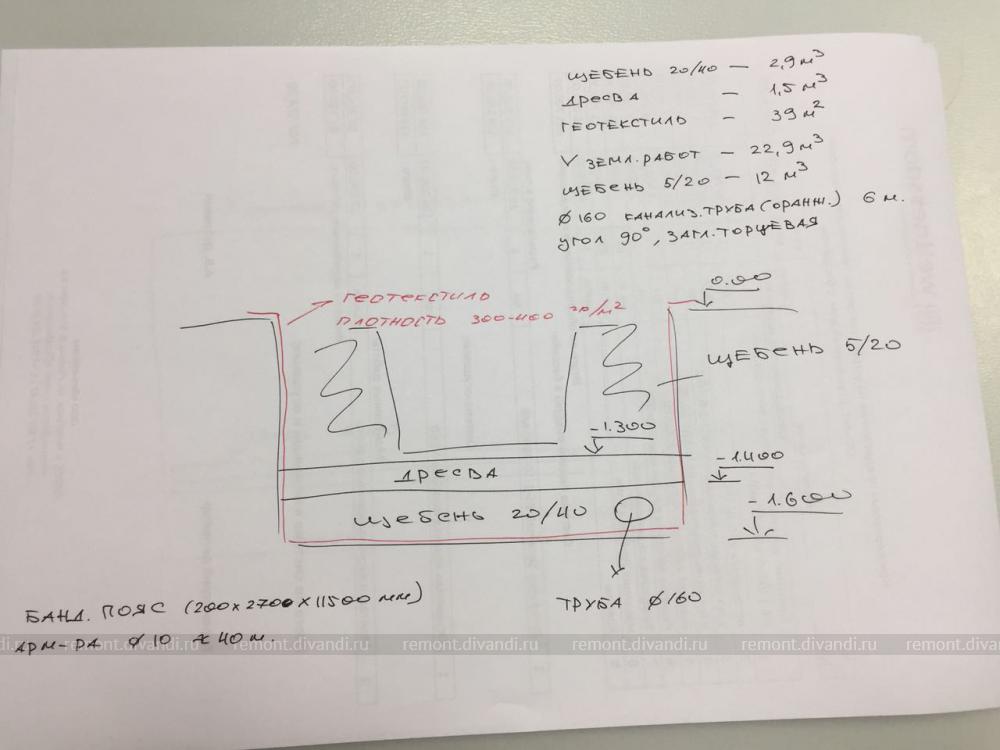 ЩЕБЕНЬ 20/40 — 2,9 м³
ДРЕСВА — 1,5 м³
ГЕОТЕКСТИЛЬ - 39 м²
V ЗЕМЛ. РАБОТ — 22,9 м³
ЩЕБЕНЬ 5/20 — 12 м³
Ø 160 КАНАЛИЗ. ТРУБА (ОРАНЖ.) 6 м.
УГОЛ 90°, ЗАГЛ. ТОРЦЕВАЯ
0.00
ГЕОТЕКСТИЛЬ
ПЛОТНОСТЬ 300-400 гр/м²
ЩЕБЕНЬ 5/20
-1.300
-1.400
ДРЕСВА
-1.600
ЩЕБЕНЬ 20/40
ТРУБА Ø160
БАНД. ПОЯС (200 х 2700 х 11500 мм)
АРМ-РА Ø 10 ≈ 40 м.
remont.divandi.ru remont.divandi.ru remont.divandi.ru remont.divandi.ru remont.divandi.ru